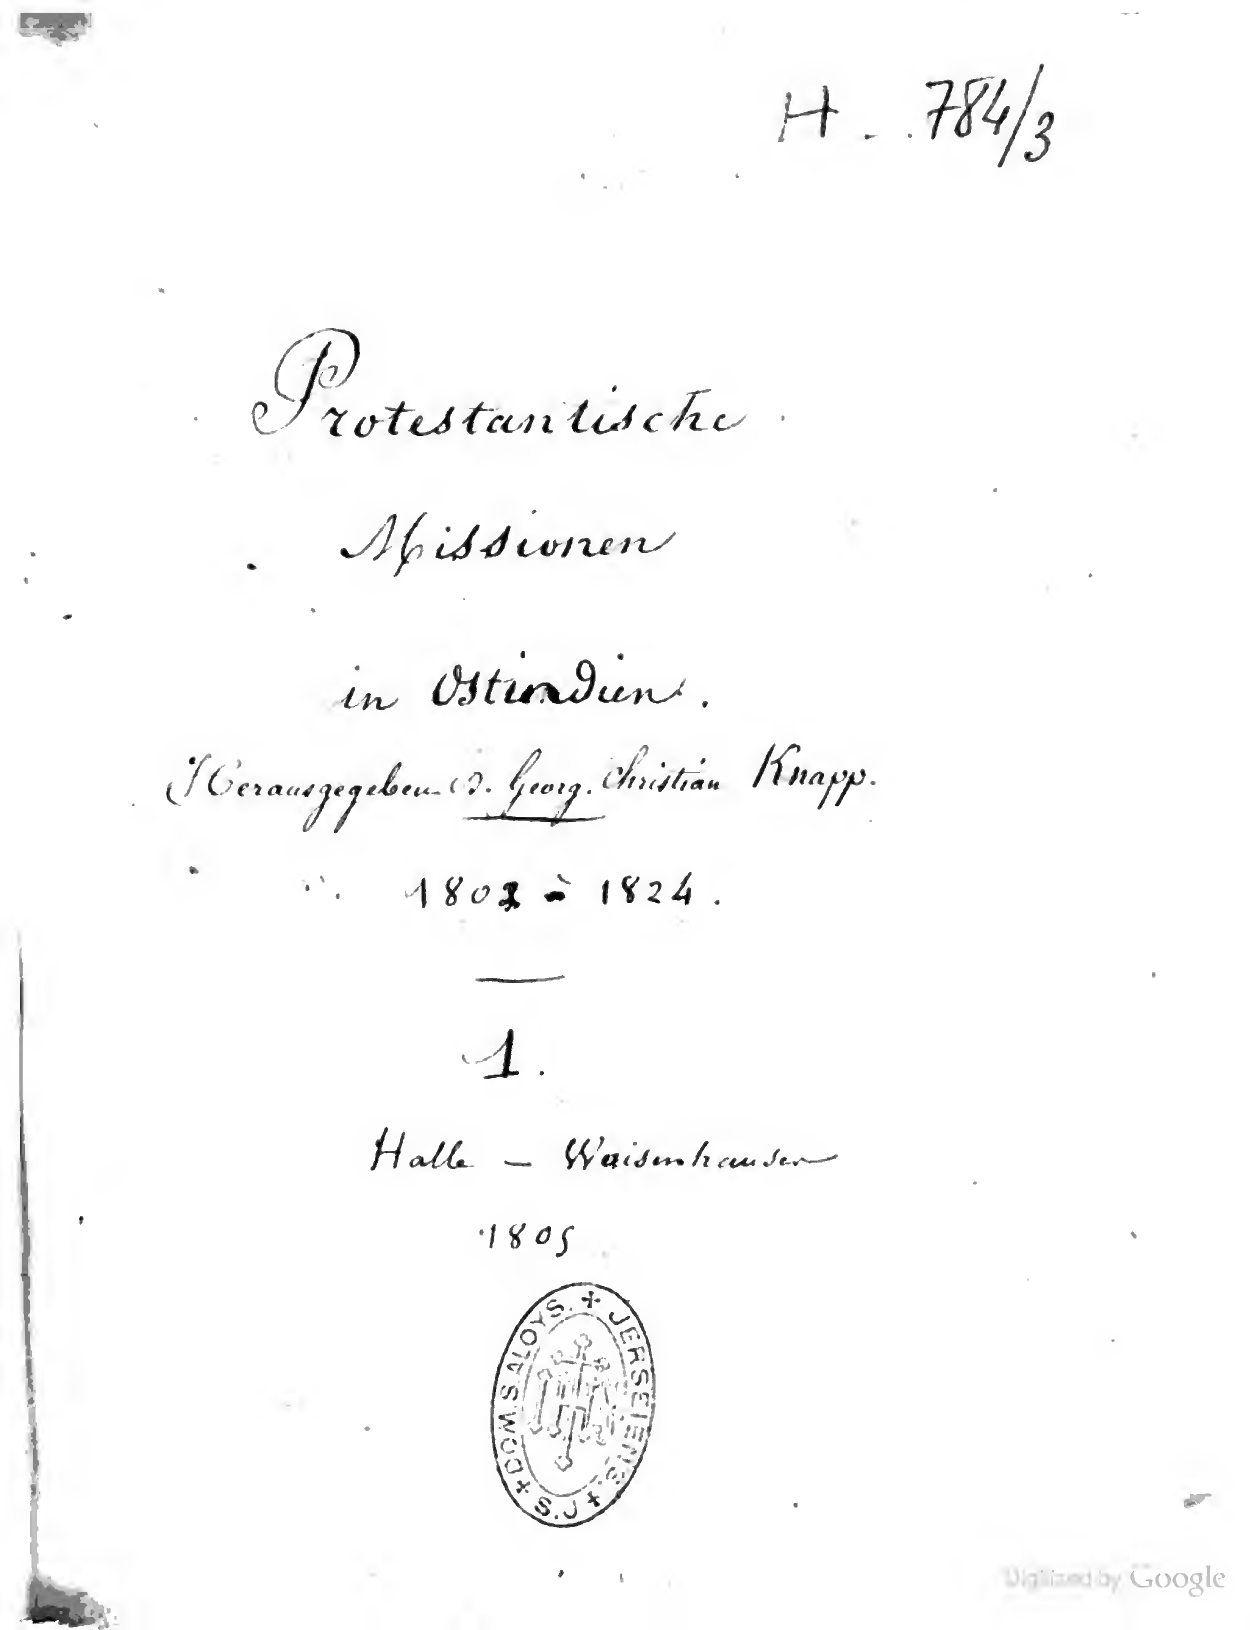 H. . 784/3
Protestantische
Missionen
in Ostindien.
Herausgegeben D. Georg. Christian Knapp.
- 1824.
1.
Halle – Waisenhauser
1805
✝ DOM. S. ALOYS. ✝ JERSEIENS. ✝ S.J.
Digitized by Google